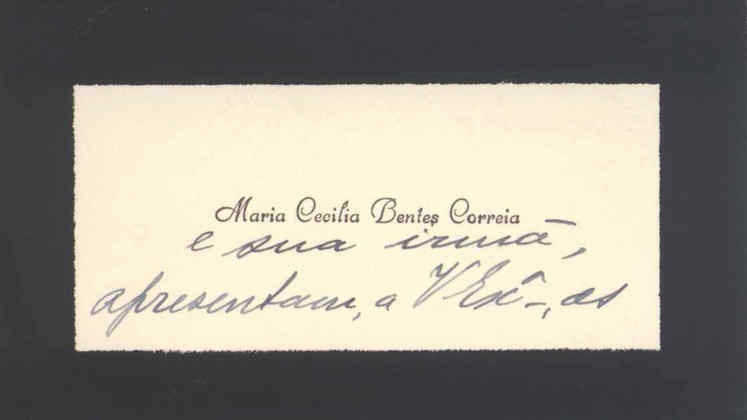 Maria Cecilia Bentes Correia
e sua irmã,
apresentam, a V Exª-, as